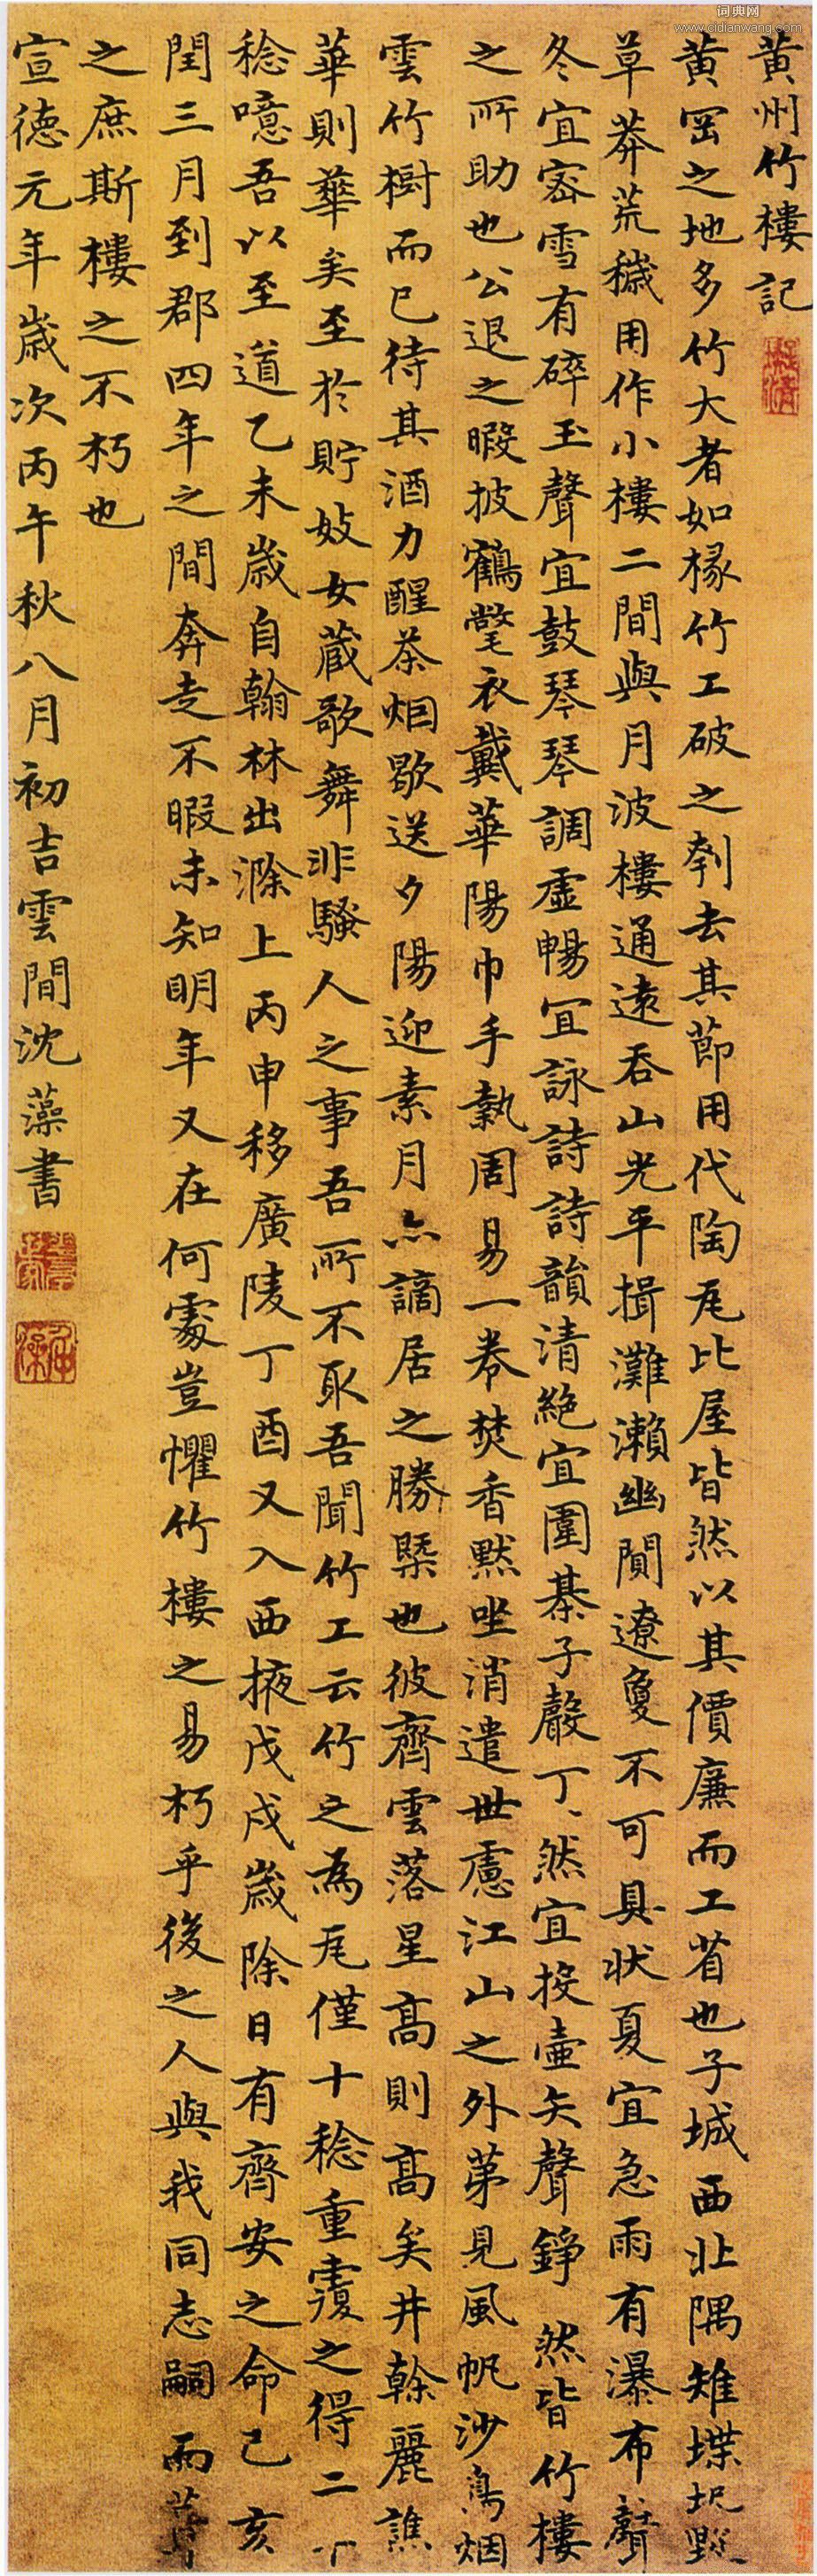 词典网
www.cidianwang.com
黄州竹樓記
黄岡之地多竹大者如椽竹工破之刳去其節用代陶瓦比屋皆然以其價廉而工省也子城西北隅雉堞圮毀
草莽荒穢用作小樓二間與月波樓通遠吞山光平挹灘瀨幽闃遼夐不可具狀夏宜急雨有瀑布聲
冬宜密雪有碎玉聲宜鼓琴琴調虛暢宜詠詩詩韻清絶宜圍棊子聲丁〻然宜投壺矢聲錚 然皆竹樓
之所助也公退之暇披鶴氅衣戴華陽巾手執周易一卷焚香默坐消遣世慮江山之外第見風帆沙鳥烟
雲竹樹而已待其酒力醒茶烟歇送夕陽迎素月亦謫居之勝槩也彼齊雲落星高則高矣井榦麗譙
華則華矣至於貯妓女藏歌舞非騷人之事吾所不取吾聞竹工云竹之為瓦僅十稔重覆之得二十
稔噫吾以至道乙未歲自翰林出滁上丙申移廣陵丁酉又入西掖戊戌歲除日有齊安之命己亥
閏三月到郡四年之間奔走不暇未知明年又在何處豈懼竹樓之易朽乎後之人與我同志嗣而葺
之庶斯樓之不朽也
宣德元年歲次丙午秋八月初吉雲間沈藻書